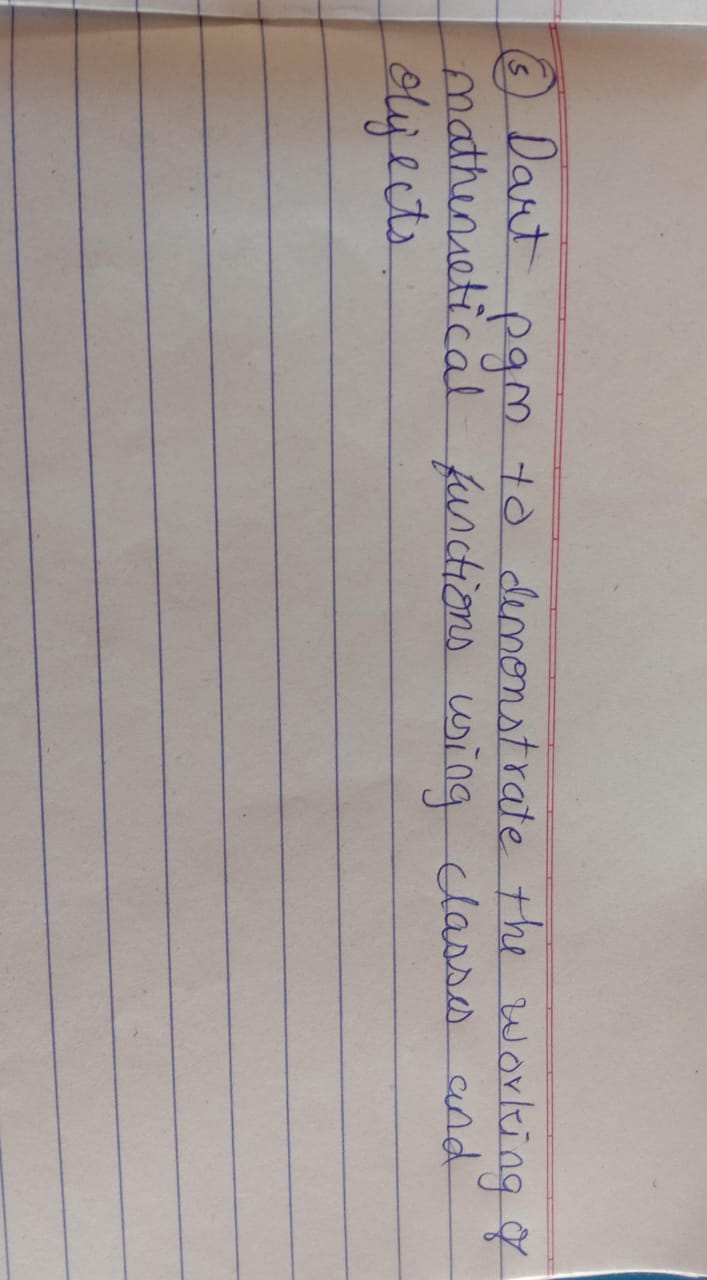 ⑤ Dart pgm to demonstrate the working of
mathemetical functions using classes and
objects